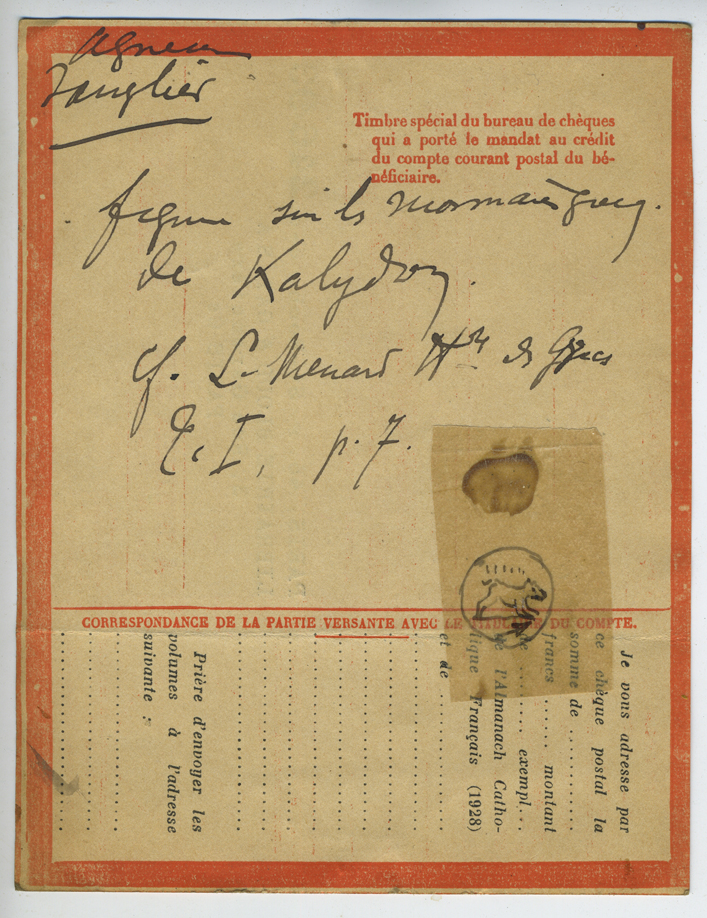 agneau
sanglier
Timbre spécial du bureau de chèques
qui a porté le mandat au crédit
du compte courant postal du bé-
néficiaire.
figure sur les monnaies
de Kalydon.
cf. L. Menard Hre des Grecs
T. I, p. 7.
CORRESPONDANCE DE LA PARTIE VERSANTE AVEC LE TITULAIRE DU COMPTE.
Je vous adresse par
ce chèque postal la
somme de ..........
francs ...... montant
de ........ exempl...
de l'Almanach Catho-
lique Français (1928)
et de ....................
Prière d'envoyer les
volumes à l'adresse
suivante :